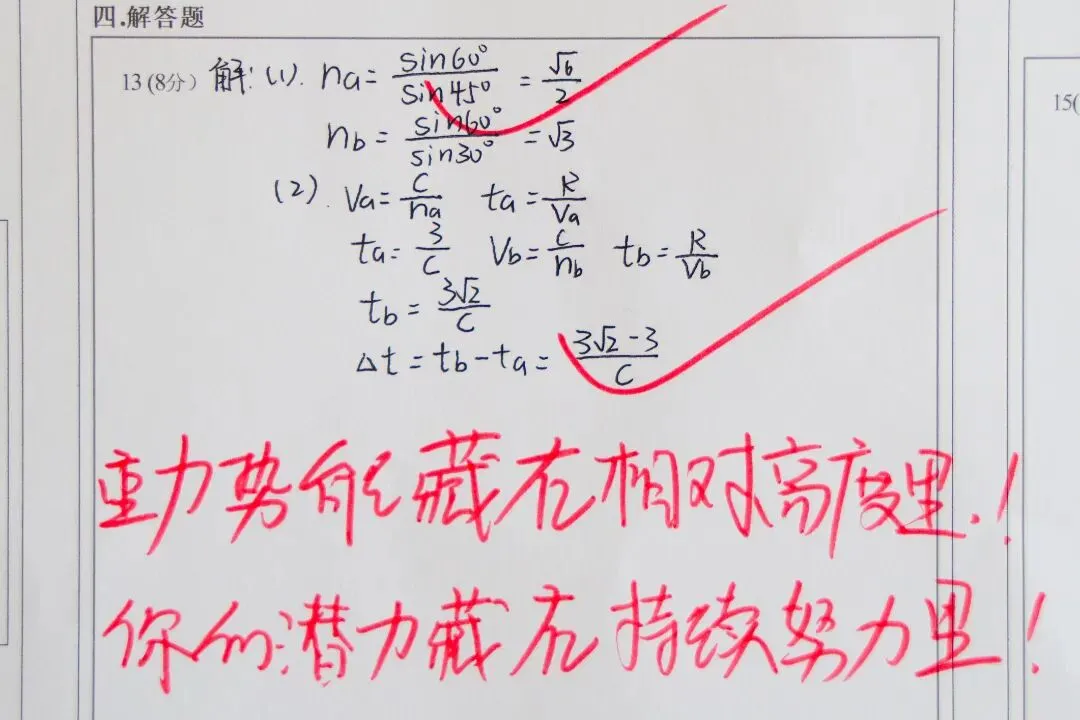 四.解答题
13(8分) 解:(1). na = sin60°/sin45° = √6/2
nb = sin60°/sin30° = √3
(2). Va = C/na ta = R/Va
ta = 3/C Vb = C/nb tb = R/Vb
tb = 3√2/C
Δt = tb - ta = 3√2 - 3/C
重力势能藏在相对高度里!
你的潜力藏在持续努力里!
15(